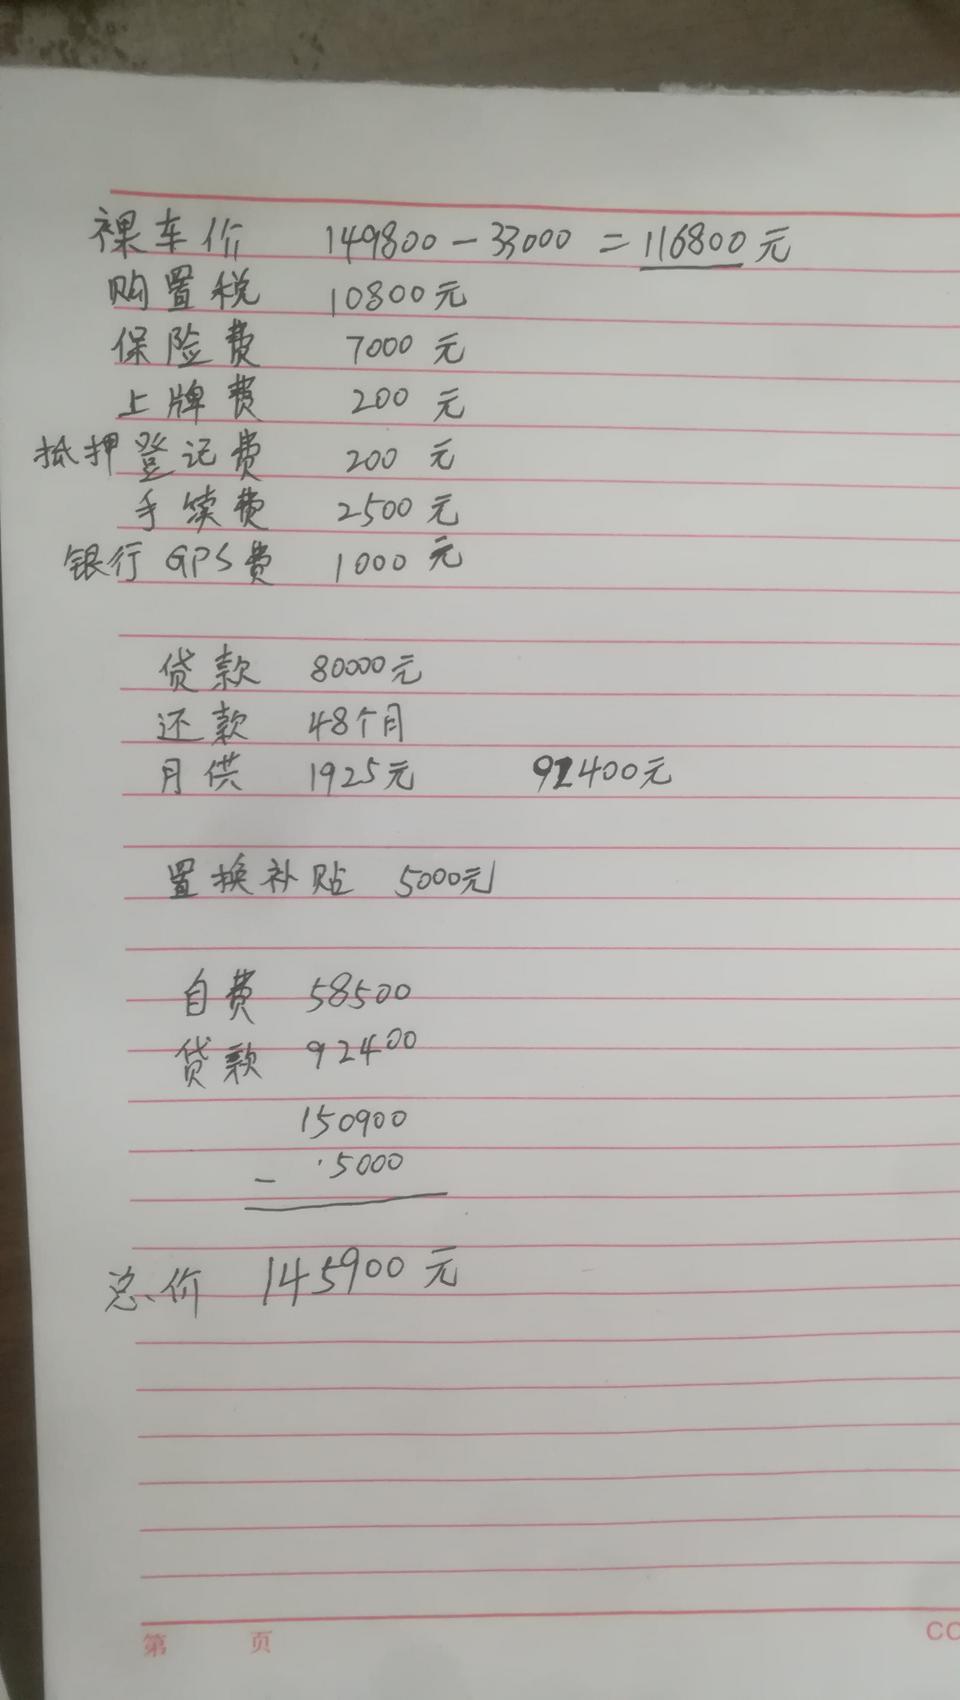 裸车价 149800-33000=116800元
购置税 10800元
保险费 7000元
上牌费 200元
抵押登记费 200元
手续费 2500元
银行GPS费 1000元
贷款 80000元
还款 48个月
月供 1925元 92400元
置换补贴 5000元
自费 58500
贷款 92400
150900
- 5000
总价 145900元
第 页
CC